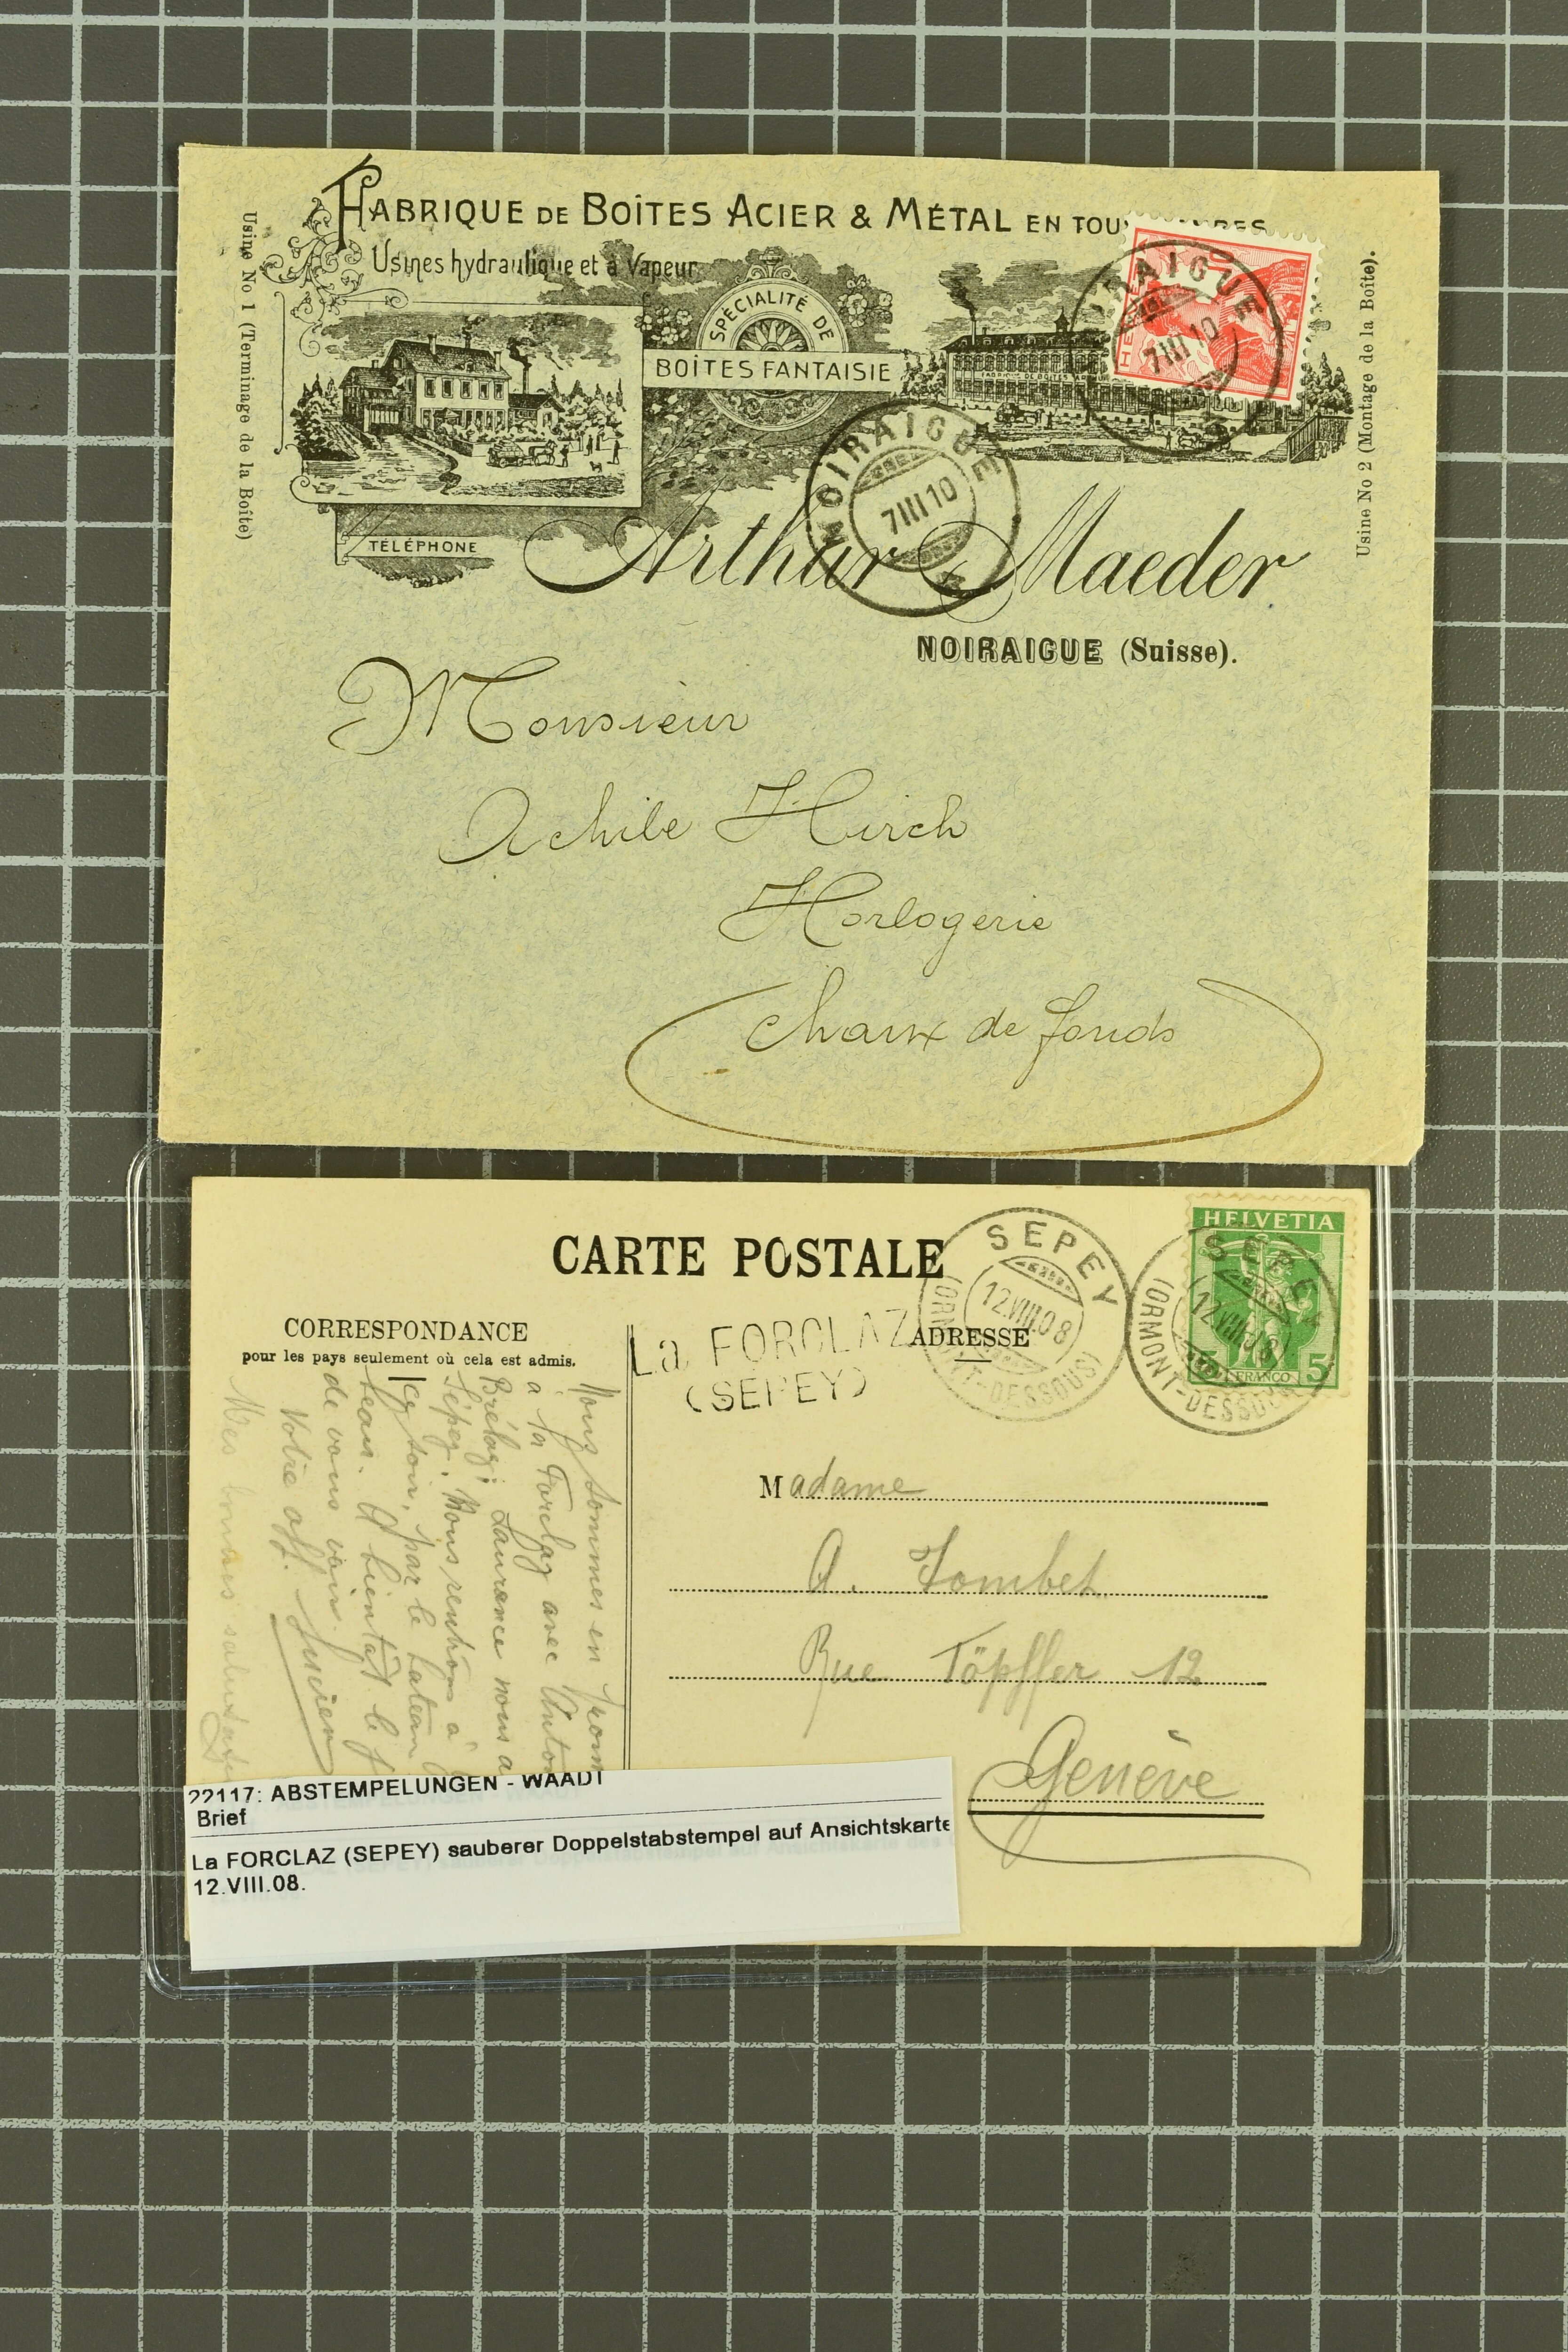 FABRIQUE DE BOÎTES ACIER & MÉTAL EN TOU
Usines hydraulique et à Vapeur
Usine No 1 (Terminage de la Boîte)
SPÉCIALITÉ DE
BOÎTES FANTAISIE
Usine No 2 (Montage de la Boîte).
RAIGUE
7 III 10
NOIRAIGUE
7 III 10
TÉLÉPHONE
Arthur Maeder
NOIRAIGUE (Suisse).
Monsieur
Achile Hirch
Horlogerie
Chaux de fonds
HELVETIA
5 FRANCO 5
SEPEY
12.VIII.08
(ORMONT-DESSOUS)
SEPEY
12.VIII.08
(ORMONT-DESSOUS)
CARTE POSTALE
CORRESPONDANCE
pour les pays seulement où cela est admis.
ADRESSE
La FORCLAZ
(SEPEY)
Nous sommes en
à la Forclaz avec
Laurence nous
Sépey. Nous rentrons à
par le bateau
A bientôt le
de vous voir.
Votre aff.
Mes bonnes
Madame
A.
Rue Töpffer 12
Genève
22117: ABSTEMPELUNGEN - WAADT
Brief
La FORCLAZ (SEPEY) sauberer Doppelstabstempel auf Ansichtskarte
12.VIII.08.